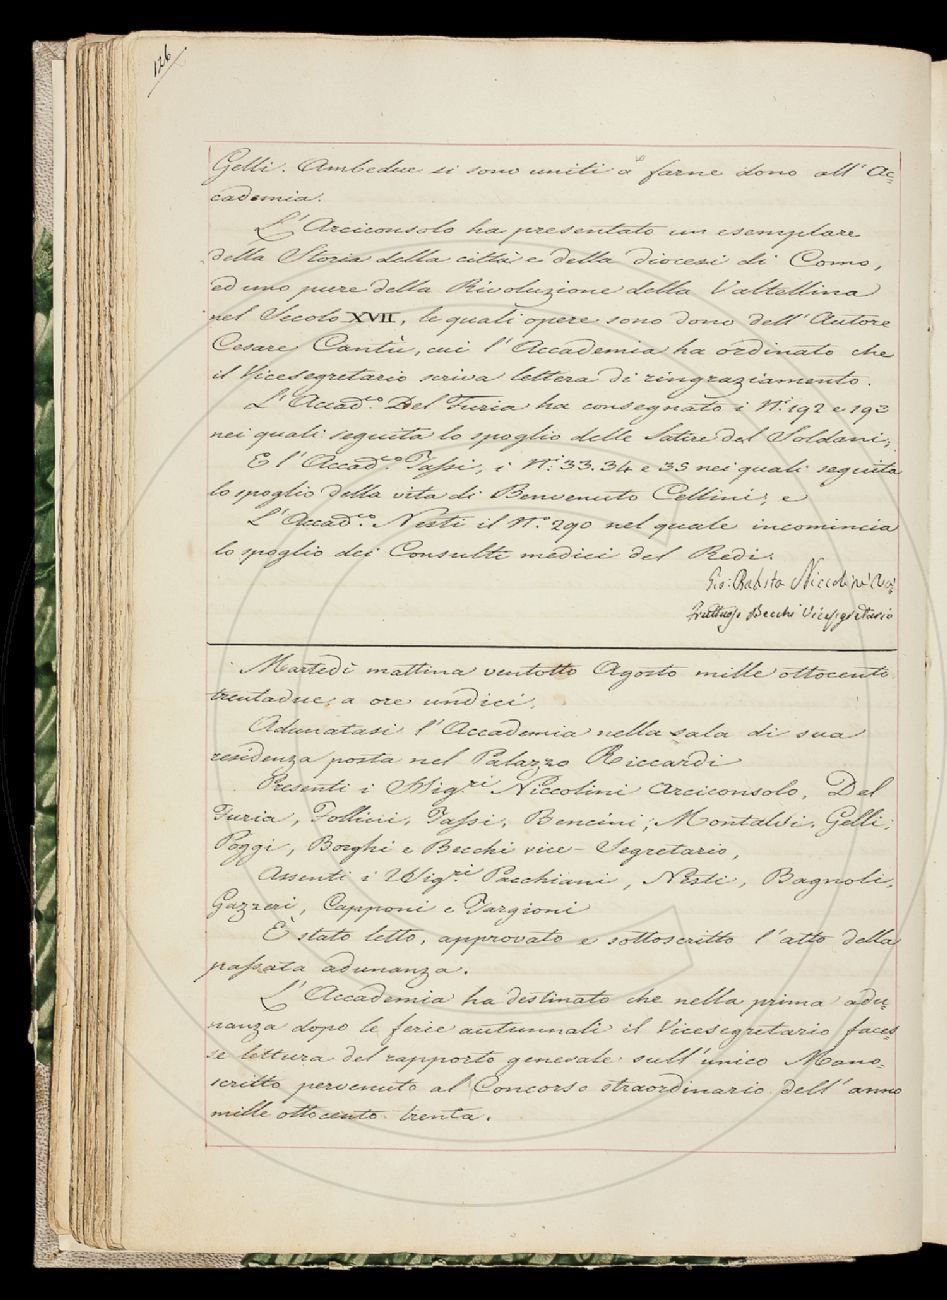 126
Gelli. Ambedue si sono uniti a farne dono all' Ac=
cademia.
L' Arciconsolo ha presentato un esemplare
della Storia della città e della diocesi di Como,
ed uno pure della Rivoluzione della Valtellina
nel Secolo XVII, le quali opere sono dono dell' Autore
Cesare Cantù, cui l' Accademia ha ordinato che
il Vicesegretario scriva lettera di ringraziamento.
L' Accad.co Del Furia ha consegnato i N.i 192 e 193
nei quali seguita lo spoglio delle Satire del Soldani;
E l' Accad.co Tassi, i N.i 33. 34 e 35 nei quali seguita
lo spoglio della vita di Benvenuto Cellini; e
L' Accad.co Nesti il N.o 290 nel quale incomincia
lo spoglio dei Consulti medici del Redi.
Gio: Batista Niccolini
Fruttuoso Becchi Vicesegretario
Martedì mattina ventotto Agosto mille ottocento
trentadue; a ore undici.
Adunatasi l' Accademia nella sala di sua
residenza posta nel Palazzo Riccardi
Presenti i Sig.ri Niccolini Arciconsolo, Del
Furia, Follini, Tassi, Bencini, Montalvi, Gelli,
Poggi, Borghi e Becchi vice-Segretario,
Assenti i Sig.ri Pacchiani, Nesti, Bagnoli,
Gazzeri, Capponi e Targioni
È stato letto, approvato e sottoscritto l' atto della
passata adunanza.
L' Accademia ha destinato che nella prima adu=
nanza dopo le ferie autunnali il Vicesegretario faces=
se lettura del rapporto generale sull' unico Mano=
scritto pervenuto al Concorso straordinario dell' anno
mille ottocento trenta.